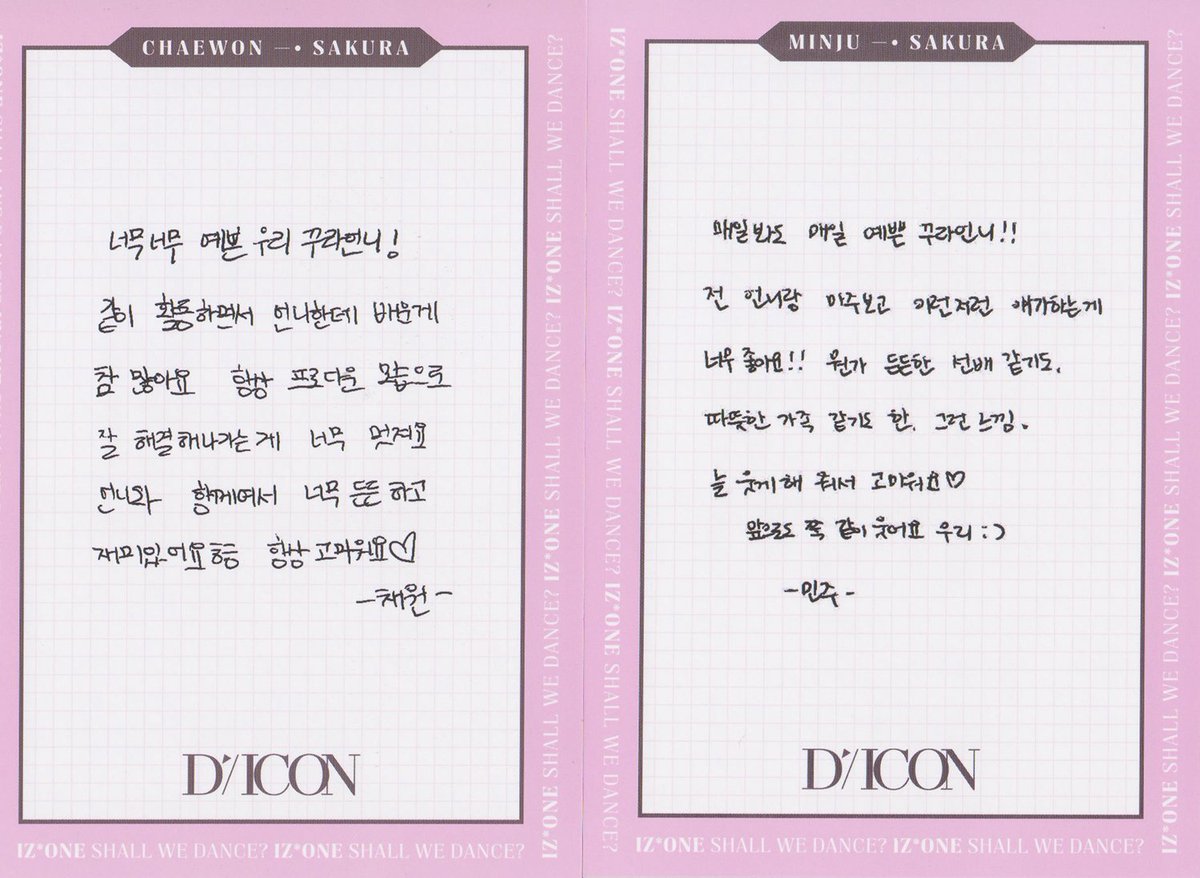 CHAEWON —• SAKURA
너무너무 예쁜 우리 꾸라언니!
같이 활동하면서 언니한테 배운게
참 많아요 항상 프로다운 모습으로
잘 해결해나가는게 너무 멋져요
언니와 함께여서 너무 든든하고
재미있어요ㅎㅎ 항상 고마워요♡
-채원-
D'/ICON
IZ*ONE SHALL WE DANCE? IZ*ONE SHALL WE DANCE?
IZ*ONE SHALL WE DANCE? IZ*ONE SHALL WE DANCE?
MINJU —• SAKURA
매일봐도 매일 예쁜 꾸라언니!!
전 언니랑 마주보고 이런저런 얘기하는게
너무 좋아요!! 뭔가 든든한 선배 같기도,
따뜻한 가족 같기도 한, 그런 느낌.
늘 웃게해 줘서 고마워요♡
앞으로도 쭉 같이 웃어요 우리 :)
-민주-
D'/ICON
IZ*ONE SHALL WE DANCE? IZ*ONE SHALL WE DANCE?
IZ*ONE SHALL WE DANCE? IZ*ONE SHALL WE DANCE?
IZ*ONE SHALL WE DANCE? IZ*ONE SHALL WE DANCE?